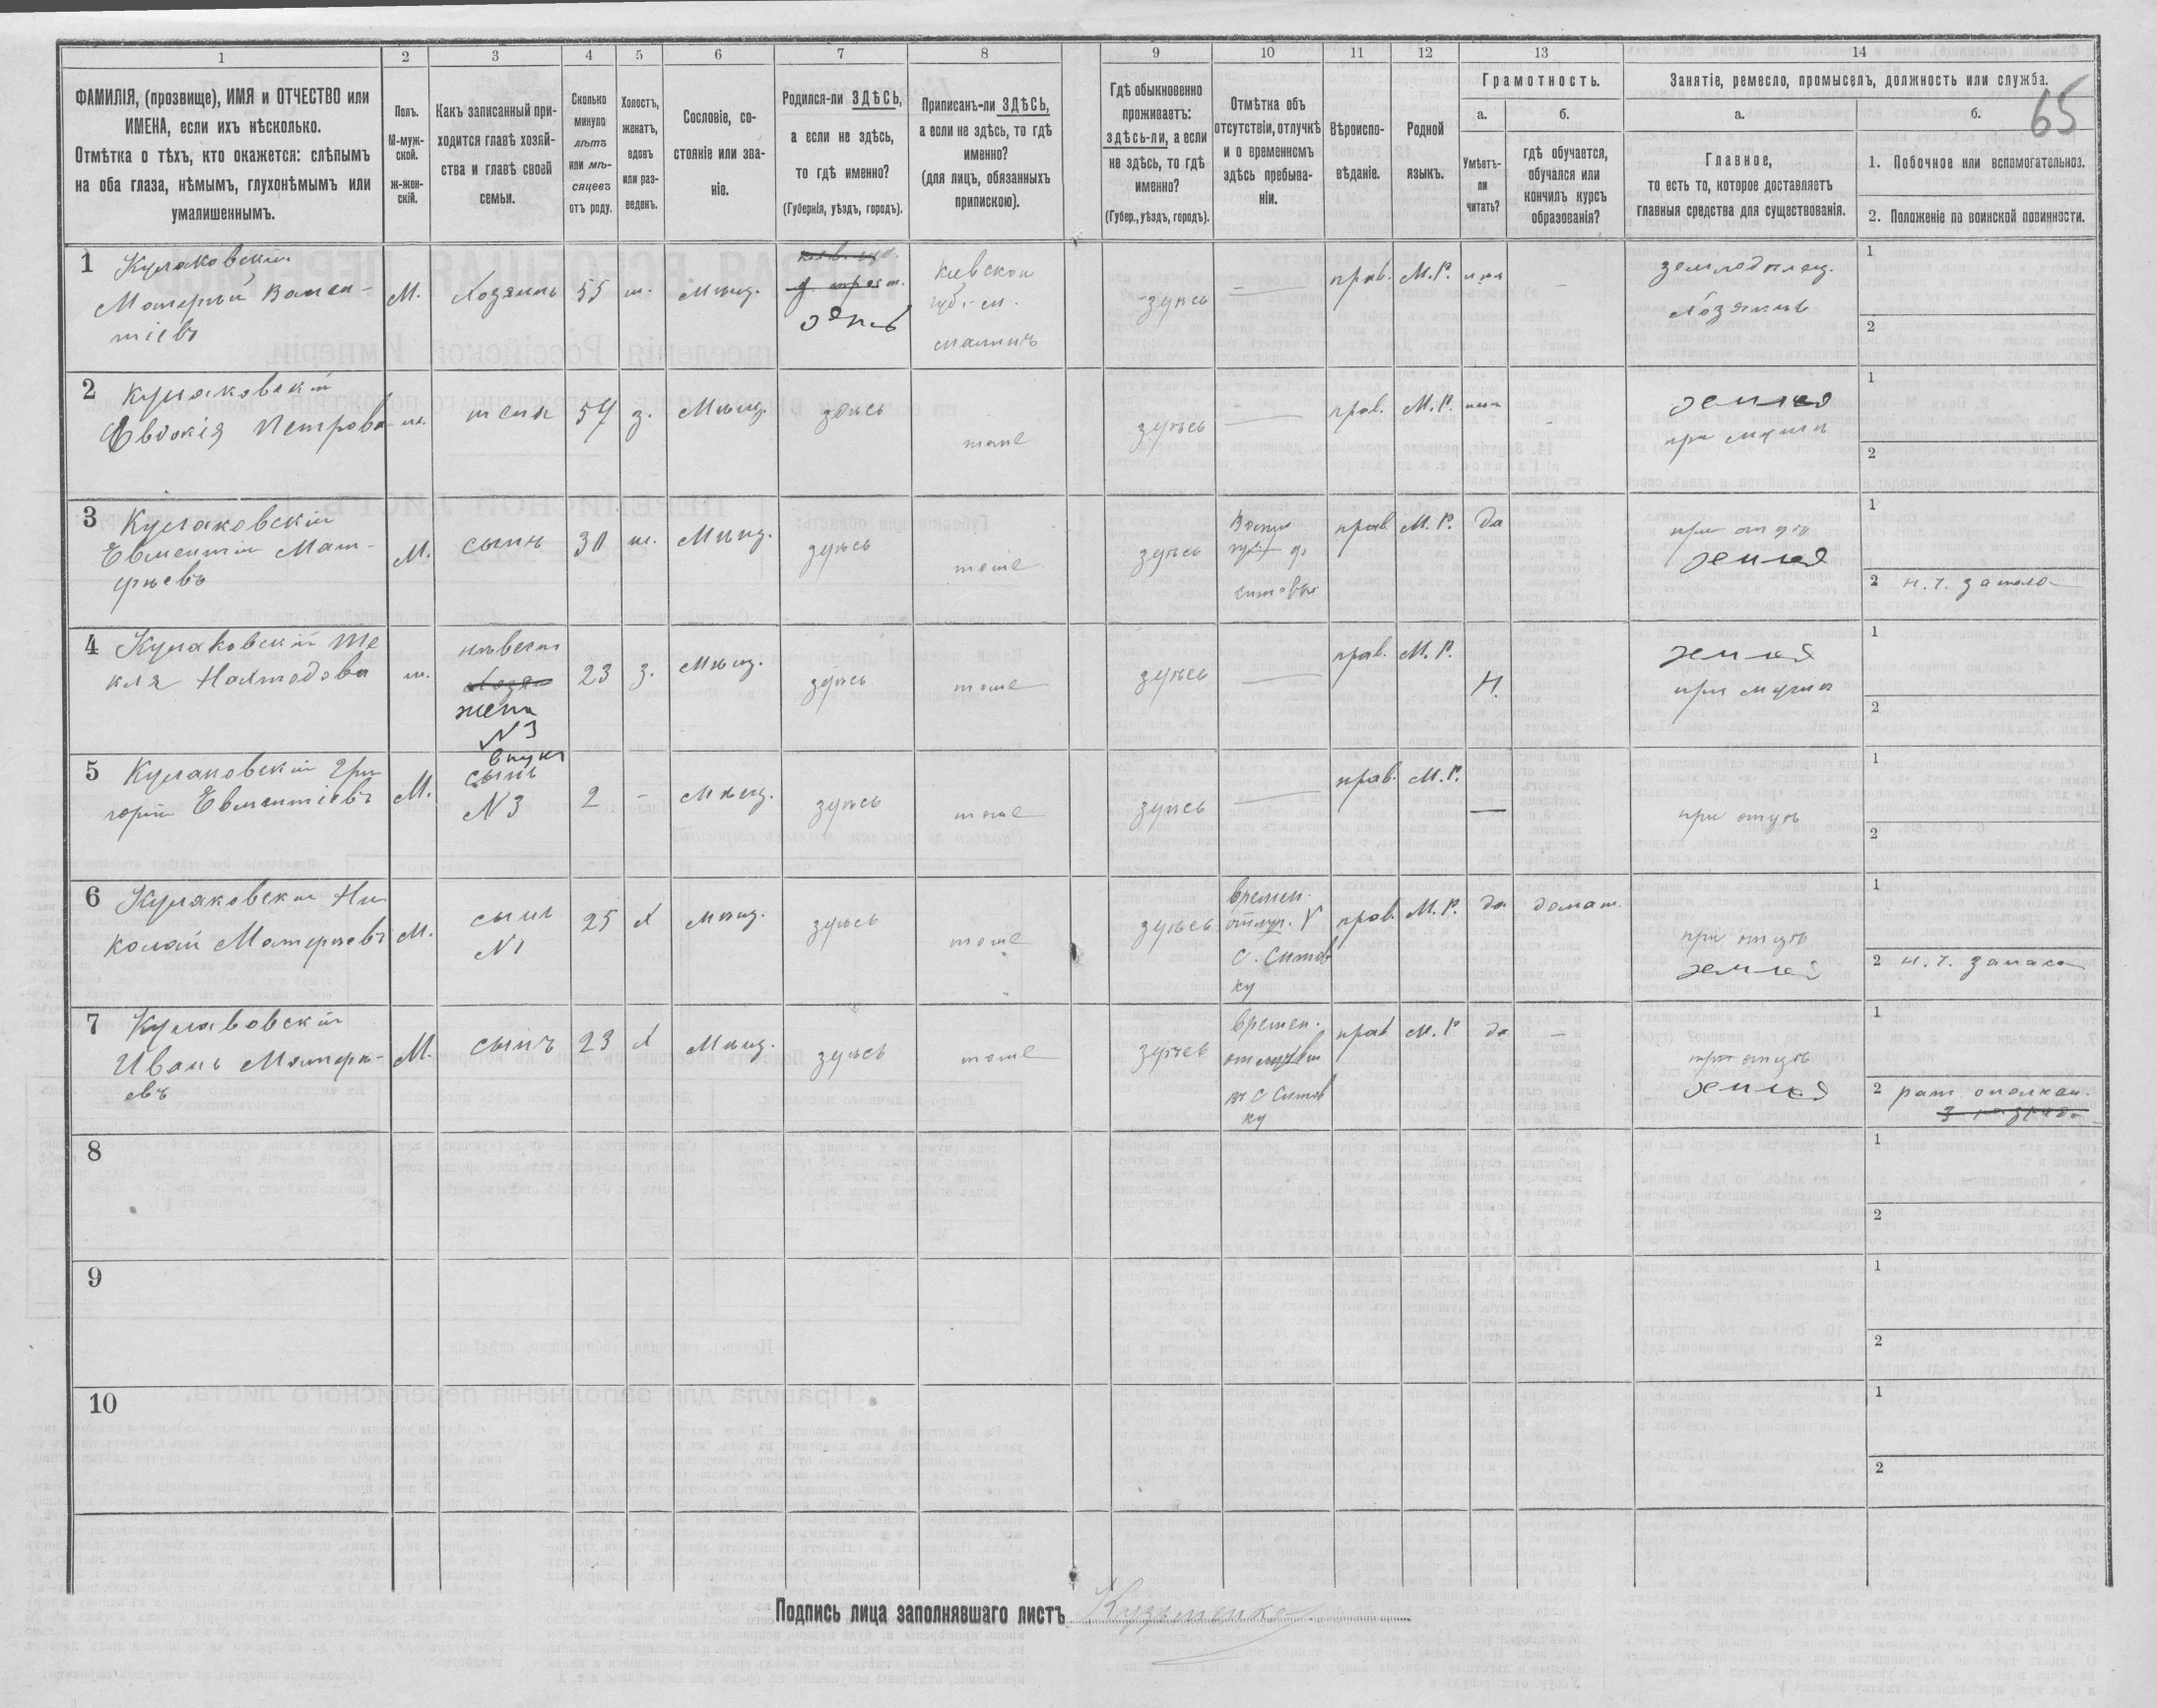 1 2 3 4 5 6 7 8 9 10 11 12 13 14
65
ФАМИЛІЯ, (прозвище), ИМЯ и ОТЧЕСТВО или
ИМЕНА, если ихъ нѣсколько.
Отмѣтка о тѣхъ, кто окажется: слѣпымъ
на оба глаза, нѣмымъ, глухонѣмымъ или
умалишеннымъ.
Полъ.
М-муж-
ской.
ж-жен-
скій.
Какъ записанный при-
ходится главѣ хозяй-
ства и главѣ своей
семьи.
Сколько
минуло
лѣтъ
или мѣ-
сяцевъ
отъ роду.
Холостъ,
женатъ,
вдовъ
или раз-
веденъ.
Сословіе, со-
стояніе или зва-
ніе.
Родился-ли ЗДѢСЬ,
а если не здѣсь,
то гдѣ именно?
(Губернія, уѣздъ, городъ).
Приписанъ-ли ЗДѢСЬ,
а если не здѣсь, то гдѣ
именно?
(для лицъ, обязанныхъ
припискою).
Гдѣ обыкновенно
проживаетъ:
здѣсь-ли, а если
не здѣсь, то гдѣ
именно?
(Губер., уѣздъ, городъ).
Отмѣтка объ
отсутствіи, отлучкѣ
и о временномъ
здѣсь пребыва-
ніи.
Вѣроиспо-
вѣданіе.
Родной
языкъ.
Грамотность.
а.
Умѣетъ-
ли
читать?
б.
гдѣ обучается,
обучался или
кончилъ курсъ
образованія?
Занятіе, ремесло, промыселъ, должность или служба.
а.
Главное,
то есть то, которое доставляетъ
главныя средства для существованія.
б.
1. Побочное или вспомогательное.
2. Положеніе по воинской повинности.
1 Кулаковскій
М. Хозяинъ 55 ж. Мѣщ.
здѣсь
Кіевской
губ. м.
Малинъ
здѣсь — прав. М.Р. —
Хозяинъ
1
2
2 Кулаковскій
Евдокія Петрова
ж. жена 57 з. Мѣщ. здѣсь
тоже
здѣсь — прав. М.Р. —
землед
при мужи
1
2
3 Кулаковскій
М. сынъ 31 ж. Мѣщ. здѣсь тоже
здѣсь
прав. М.Р. да
при отцѣ
землед
1
2 н. ч. запаса
4 Кулаковскій Те
кля
ж.
невестк
жена
N 3
23 з. Мѣщ. здѣсь тоже
здѣсь — прав. М.Р. Н.
землед
при мужи
1
2
5 Кулаковскій Гри
горій Евлентіевъ
М.
внукъ
сынъ
N 3
2 - Мѣщ. здѣсь тоже
здѣсь — прав. М.Р. —
при отцѣ
1
2
6 Кулаковскій Ни
колай Матерневъ
М.
сынъ
N 1
25 Х Мѣщ. здѣсь тоже
здѣсь
времен.
отлуч. V
с. Ситов
ку
прав. М.Р. да домаш.
при отцѣ
землед
1
2 н. ч. запаса
7 Кулавовскій
Иванъ Матерн-
евъ
М. сынъ 23 Х Мѣщ. здѣсь тоже
здѣсь
времен.
въ с Ситов
ку
прав М.Р да —
при отцѣ
землед
1
2 рат ополчен.
3 разряда
8
1
2
9
1
2
10
1
2
Подпись лица заполнявшаго листъ Кузьменко